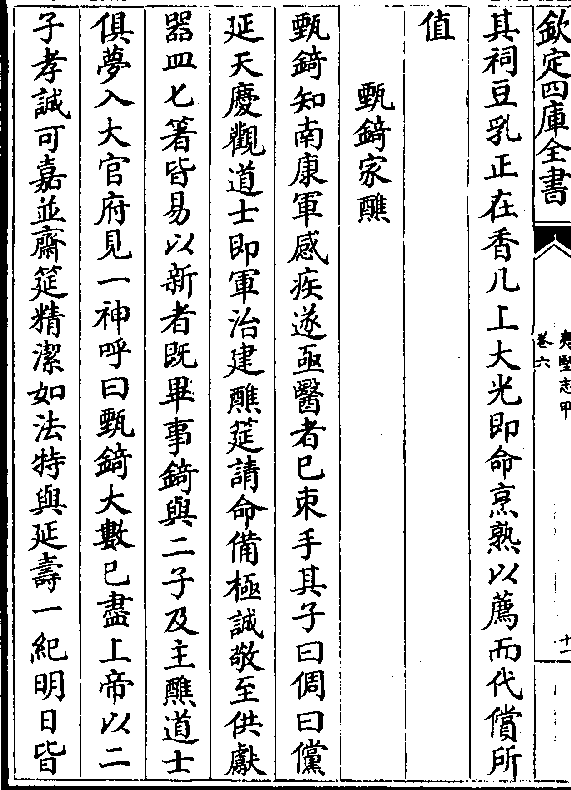 欽定四庫全書
夷堅志甲
卷六
十一
其祠豆乳正在香几上大光即命烹熟以薦而代償所
值
甄錡家醮
甄錡知南康軍感疾遂亟醫者已束手其子曰倜曰儻
延天慶觀道士即軍治建醮筵請命備極誠敬至供獻
器皿匕箸皆易以新者既畢事錡與二子及主醮道士
俱夢入大官府見一神呼曰甄錡大數已盡上帝以二
子孝誠可嘉並齋筵精潔如法特與延壽一紀明日皆